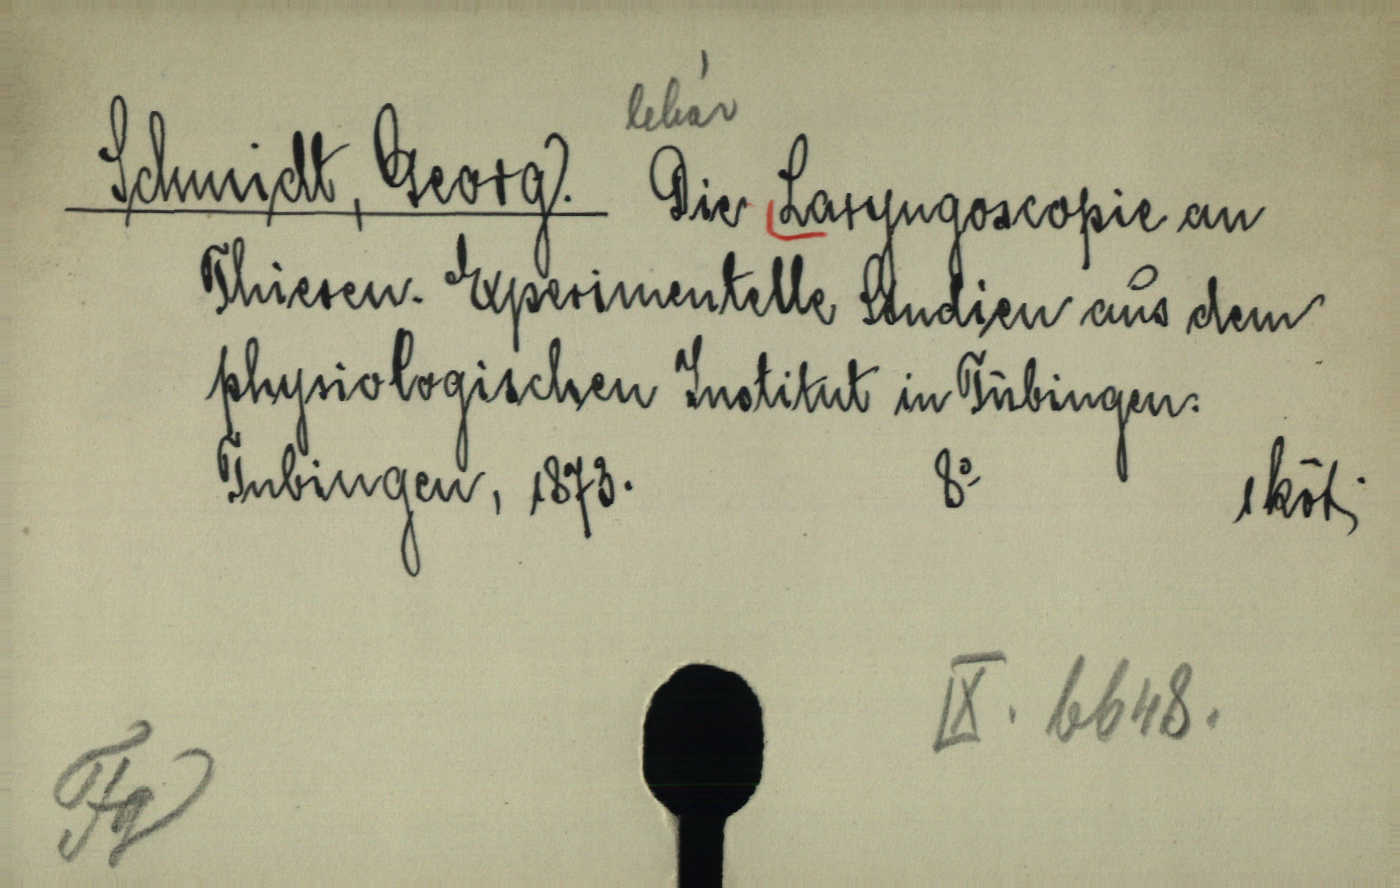 lekár
Schmidt, Georg. Die Laryngoscopie an
Thieren. Experimentelle Studien aus dem
physiologischen Institut in Tübingen.
Tubingen, 1873. 8° 1 köt.
IX. 6648.